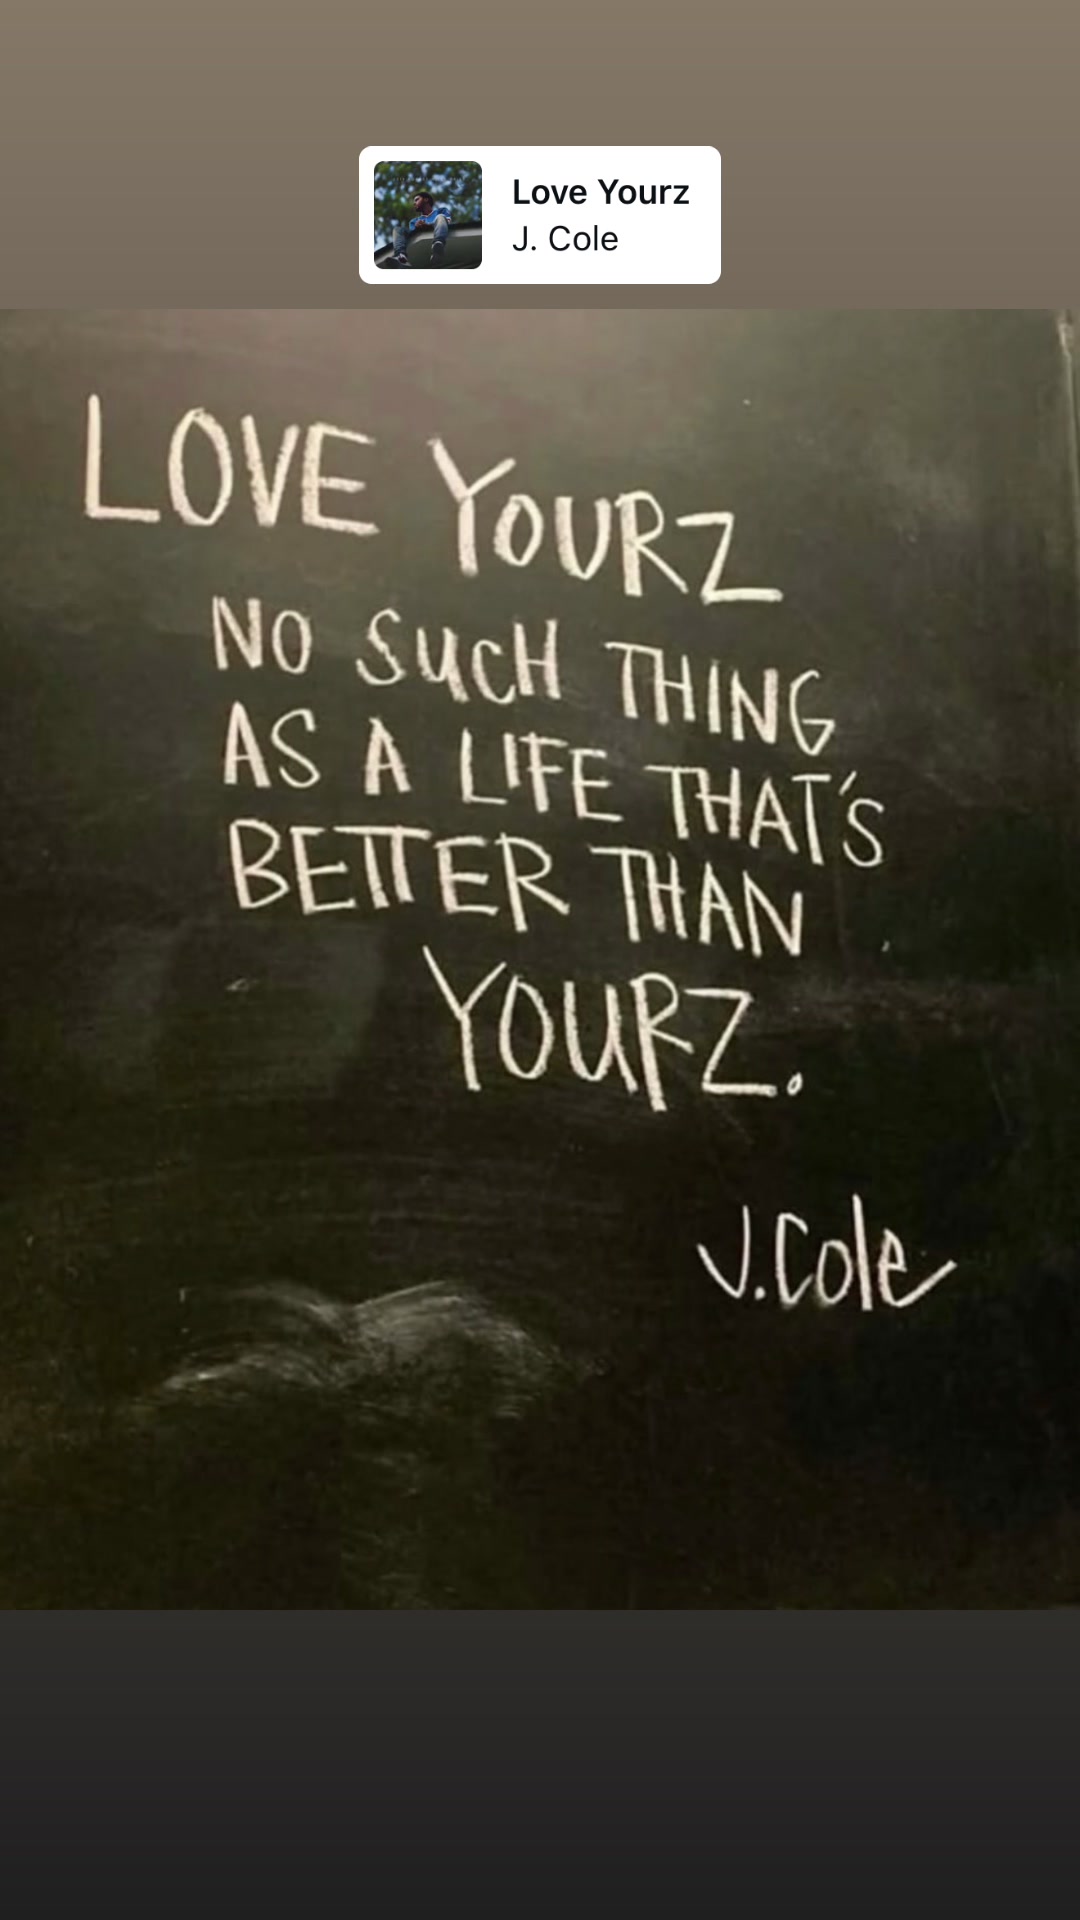 Love Yourz
J. Cole
LOVE YOURZ
NO SUCH THING
AS A LIFE THAT'S
BETTER THAN
YOURZ.
J.Cole